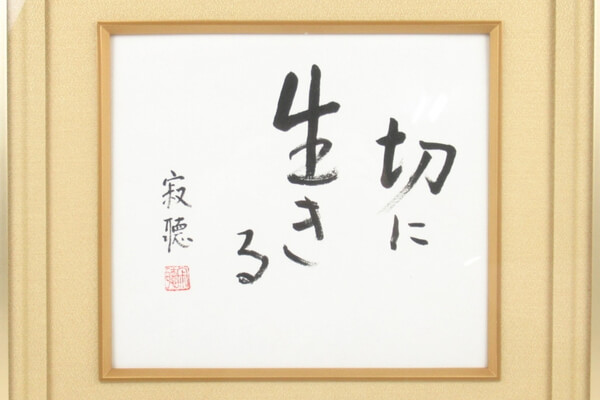 切に
生きる
寂聴